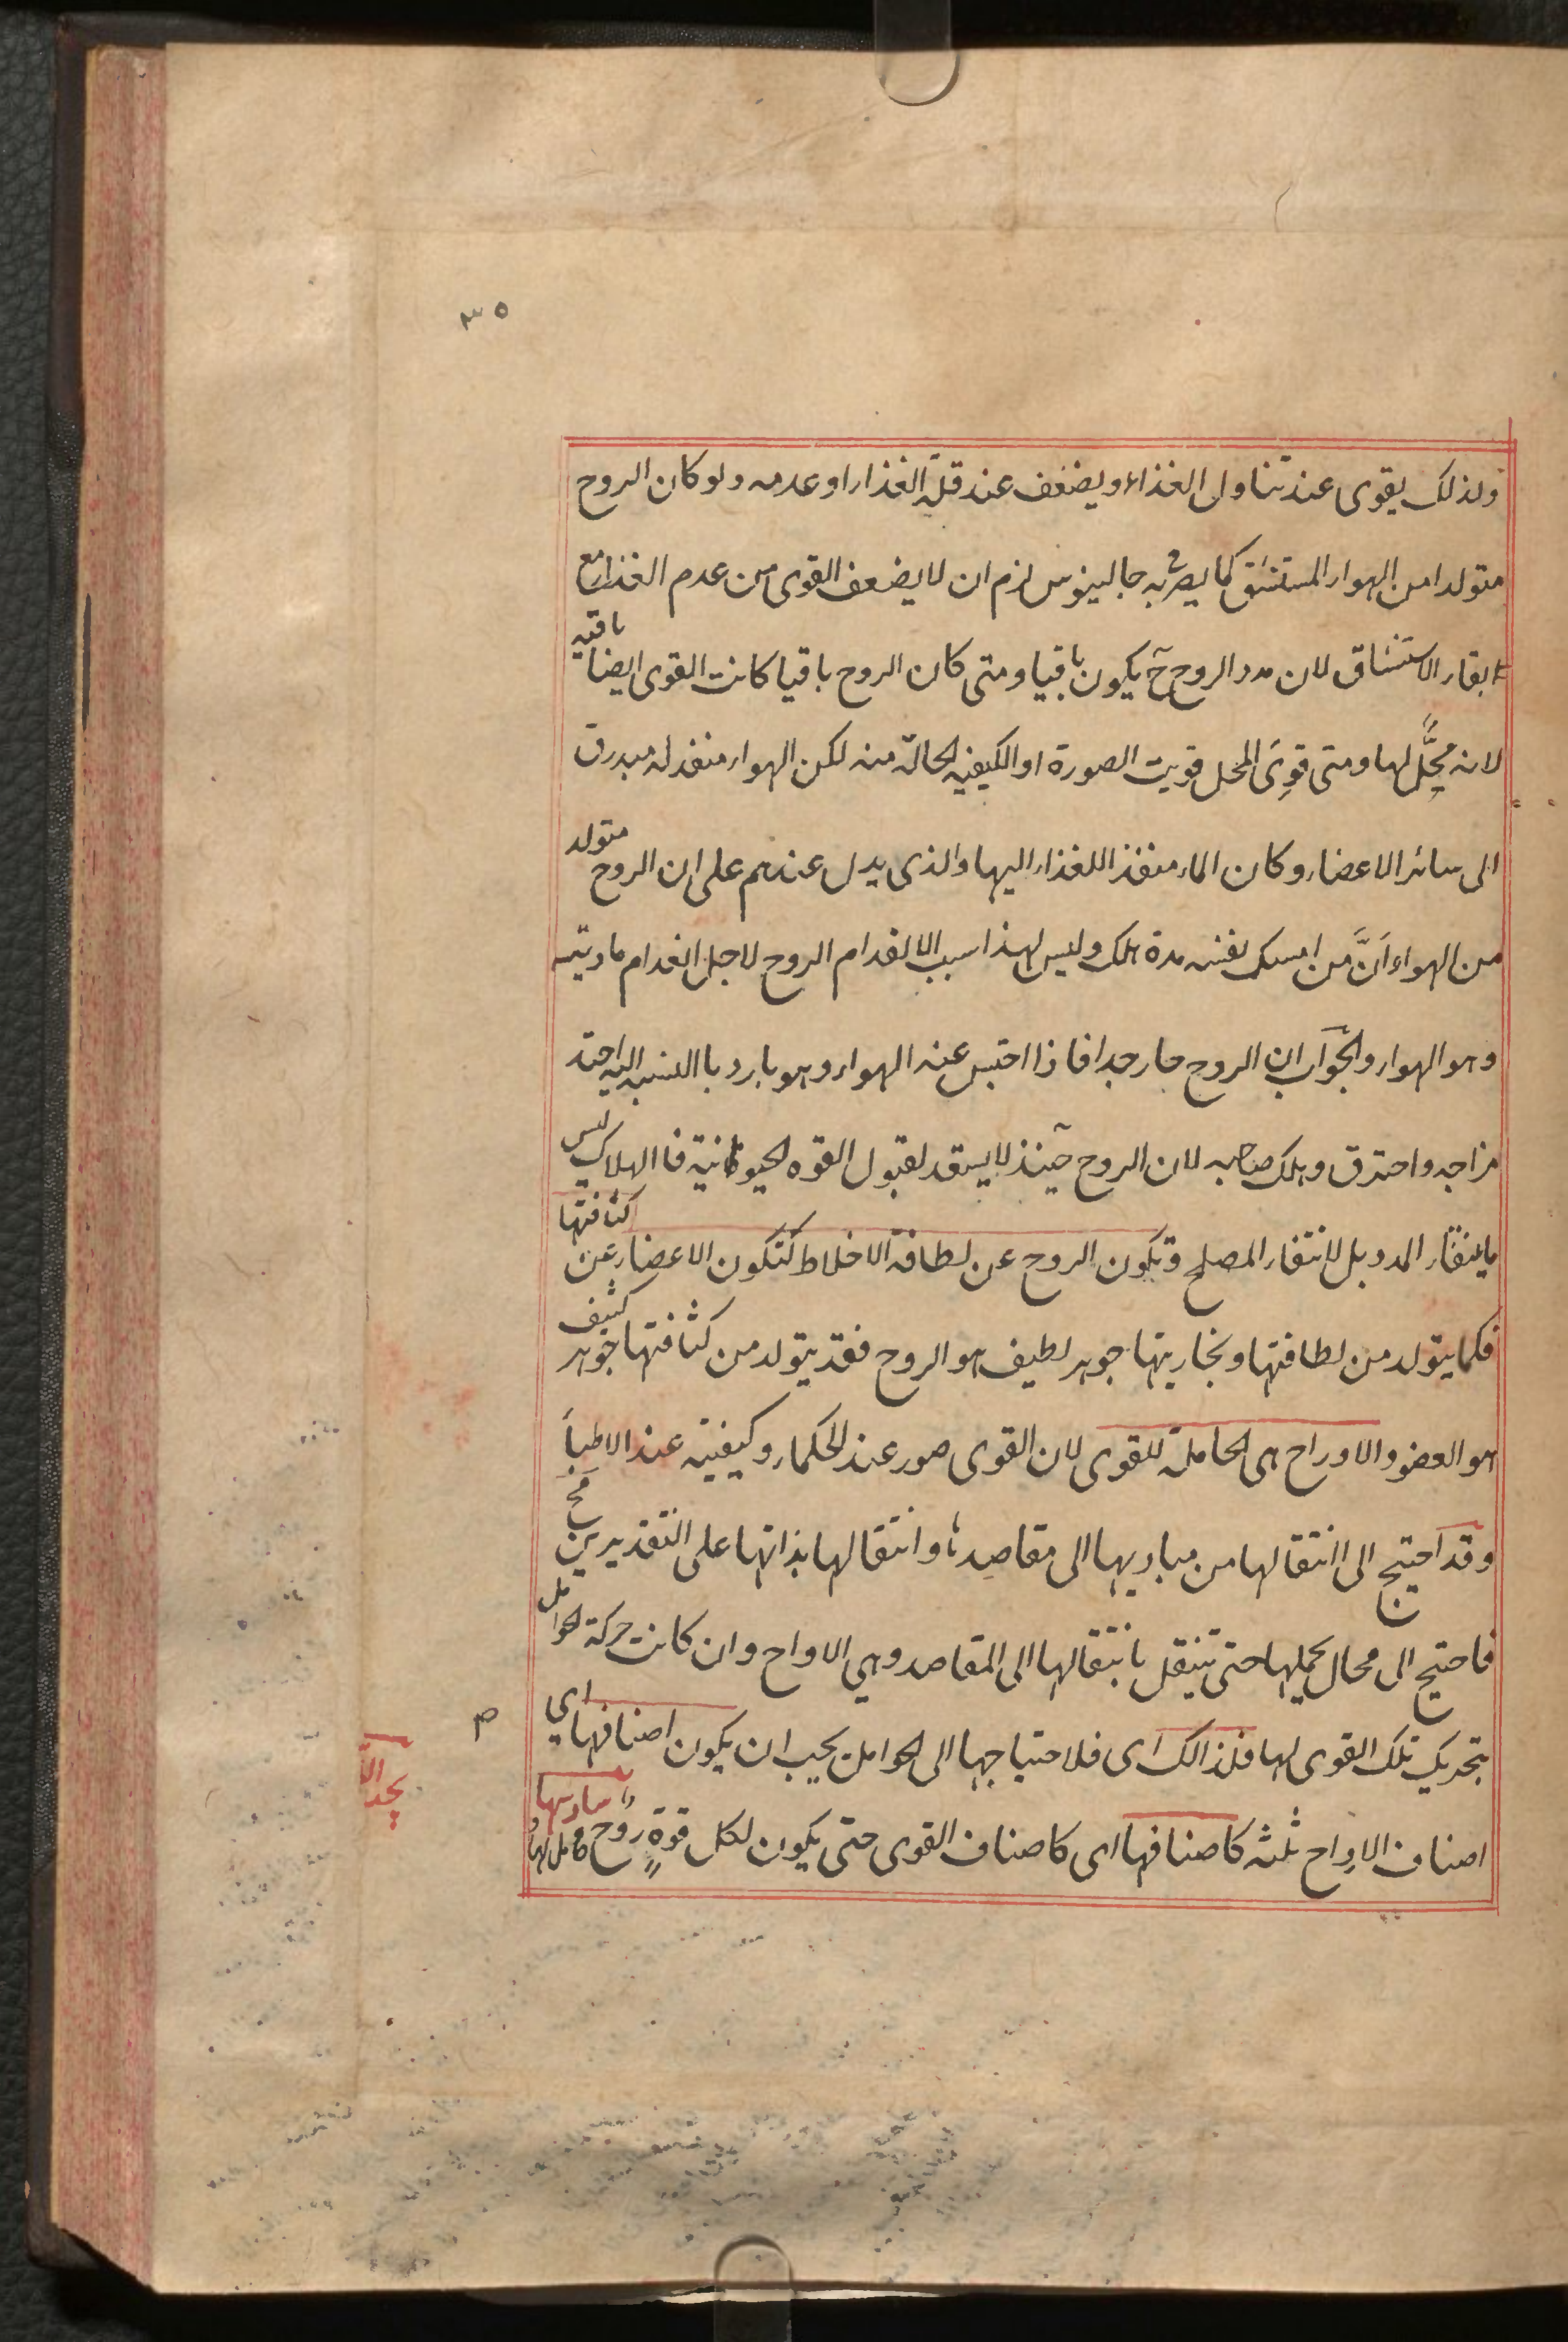 ٣٥
ولذلك يقوى عند تناول الغذاء ويضعف عند قلة الغذاء او عدمه ولو كان الروح
متولدا من الهواء المستنشق كما يصرح به جالينوس لزم ان لا يضعف القوى من عدم الغذاء مع
ابقاء الاستنشاق لان مدد الروح ح يكون باقيا ومتى كان الروح باقيا كانت القوى ايضا باقيه
لانه محل لها ومتى قوى المحل قويت الصورة او الكيفيه الحالة منه لكن الهواء منفذ له مبدرق
الى سائر الاعضاء وكان الماء منفذا للغذاء اليها والذى يدل عندهم على ان الروح متولد
من الهواء أنَّ من امسك نفسه مدة هلك وليس لهذا سبب الا انعدام الروح لاجل انعدام مادتية
وهو الهواء والجواب ان الروح حار جدا فاذا احتبس عنه الهواء وهو بارد باالنسبه اليه احتد
مزاجه واحترق وهلك صاحبه لان الروح حينئذ لا يستعد لقبول القوه الحيوانية فاالهلاك ليس
بانتفاء المدد بل لانتفاء المصلح وتكون الروح عن لطافة الاخلاط كتكون الاعضاء عن كثافتها
فكما يتولد من لطافتها وبخاريتها جوهر لطيف هو الروح فقد يتولد من كثافتها جوهر كثيف
هو العضو والاوراح هى الحاملة للقوى لان القوى صور عند الحكماء وكيفيته عند الاطبا
وقد احتيج الى انتقالها من مباديها الى مقاصدها وانتقالها بذاتها على التقديرين مح
فاحتيج الى محال يحملها حتى تنتقل بانتقالها الى المقاصد وهي الاواح وان كانت حركة الحوامل
بتحريك تلك القوى لها فلذالك اى فلاحتياجها الى الحوامل يجب ان يكون اصنافها اي
اصناف الاواح ثلثه كاصنافها اى كاصناف القوى حتى يكون لكل قوة روح حامل لها